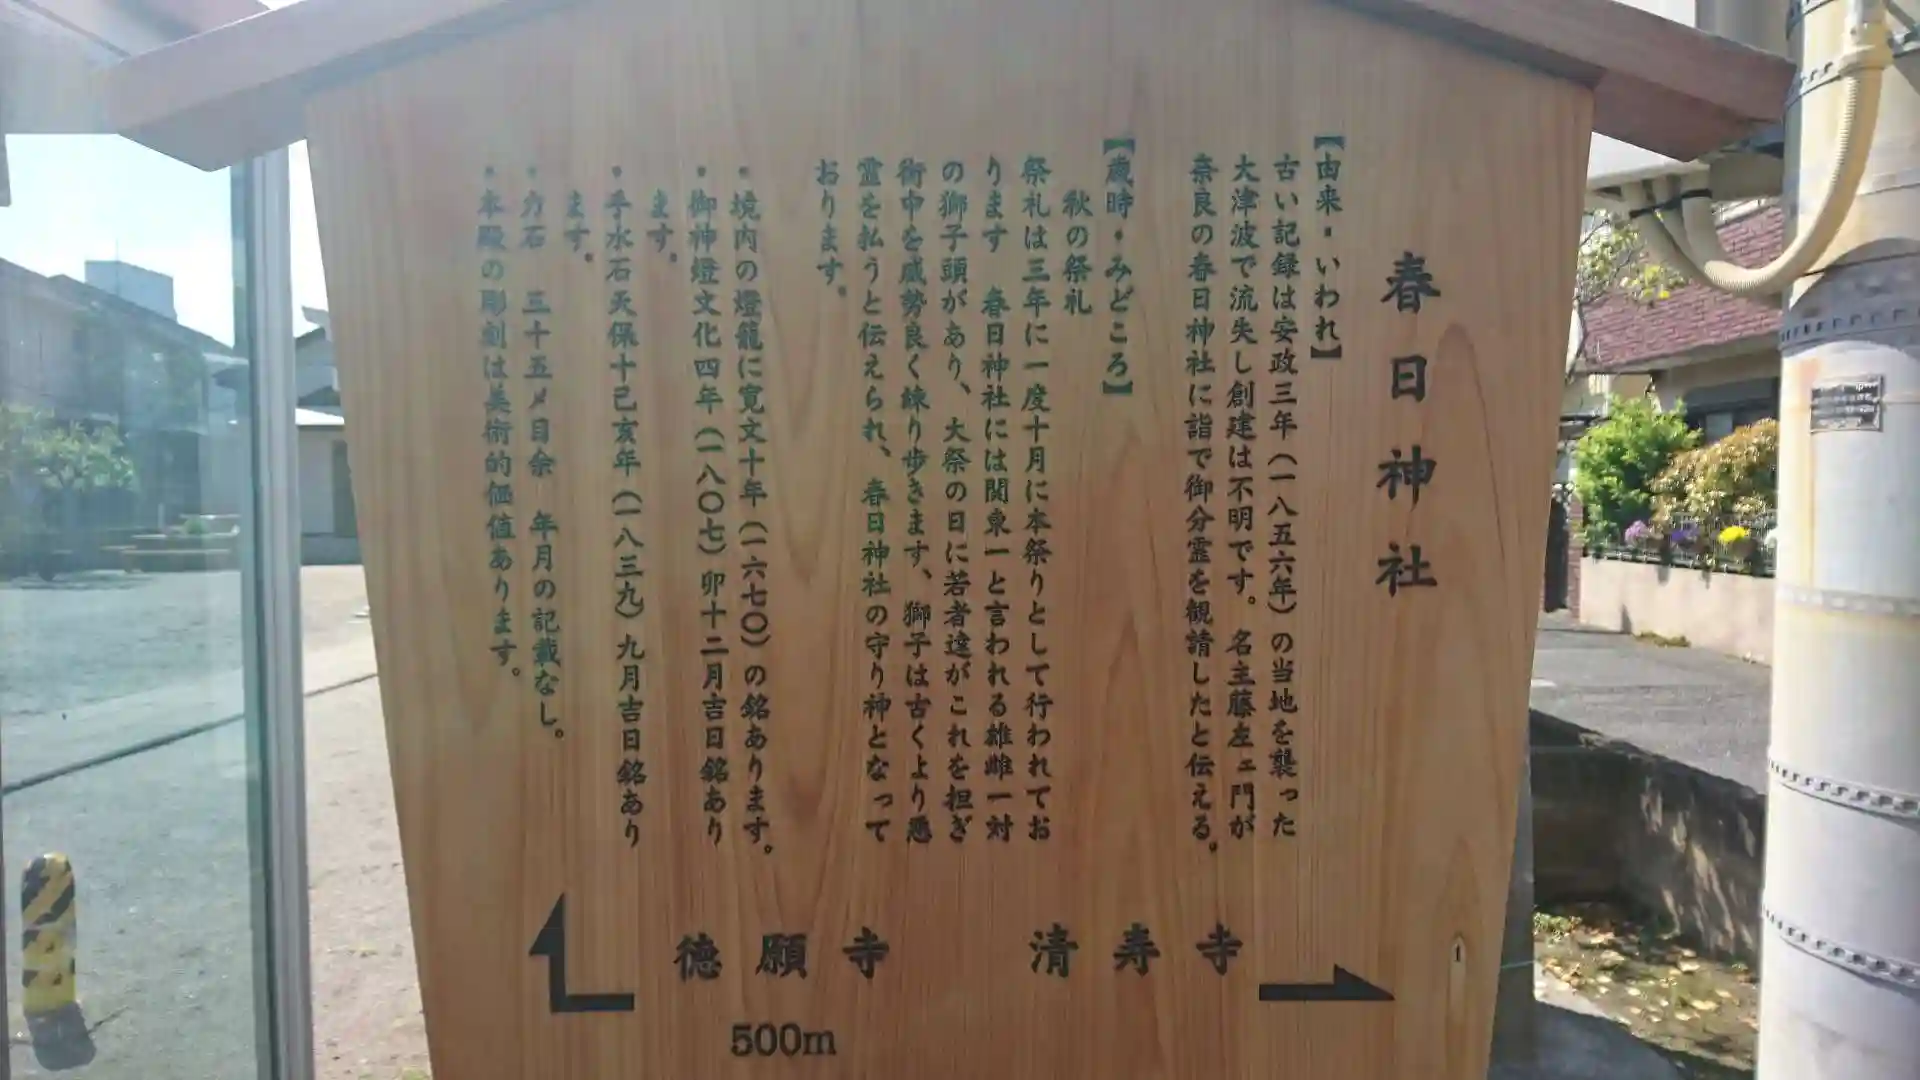 春日神社
【由来・いわれ】
古い記録は安政三年（一八五六年）の当地を襲った
大津波で流失し創建は不明です。名主藤左ェ門が
奈良の春日神社に詣で御分霊を観請したと伝える。
【歳時・みどころ】
秋の祭礼
祭礼は三年に一度十月に本祭りとして行われてお
ります　春日神社には関東一と言われる雄雌一対
の獅子頭があり、大祭の日に若者達がこれを担ぎ
街中を威勢良く練り歩きます、獅子は古くより悪
霊を払うと伝えられ、春日神社の守り神となって
おります。
・境内の燈籠に寛文十年（一六七〇）の銘あります。
・御神燈文化四年（一八〇七）卯十二月吉日銘あり
ます。
・手水石天保十己亥年（一八三九）九月吉日銘あり
ます。
・力石　三十五〆目余　年月の記載なし。
・本殿の彫刻は美術的価値あります。
清寿寺
徳願寺
500m